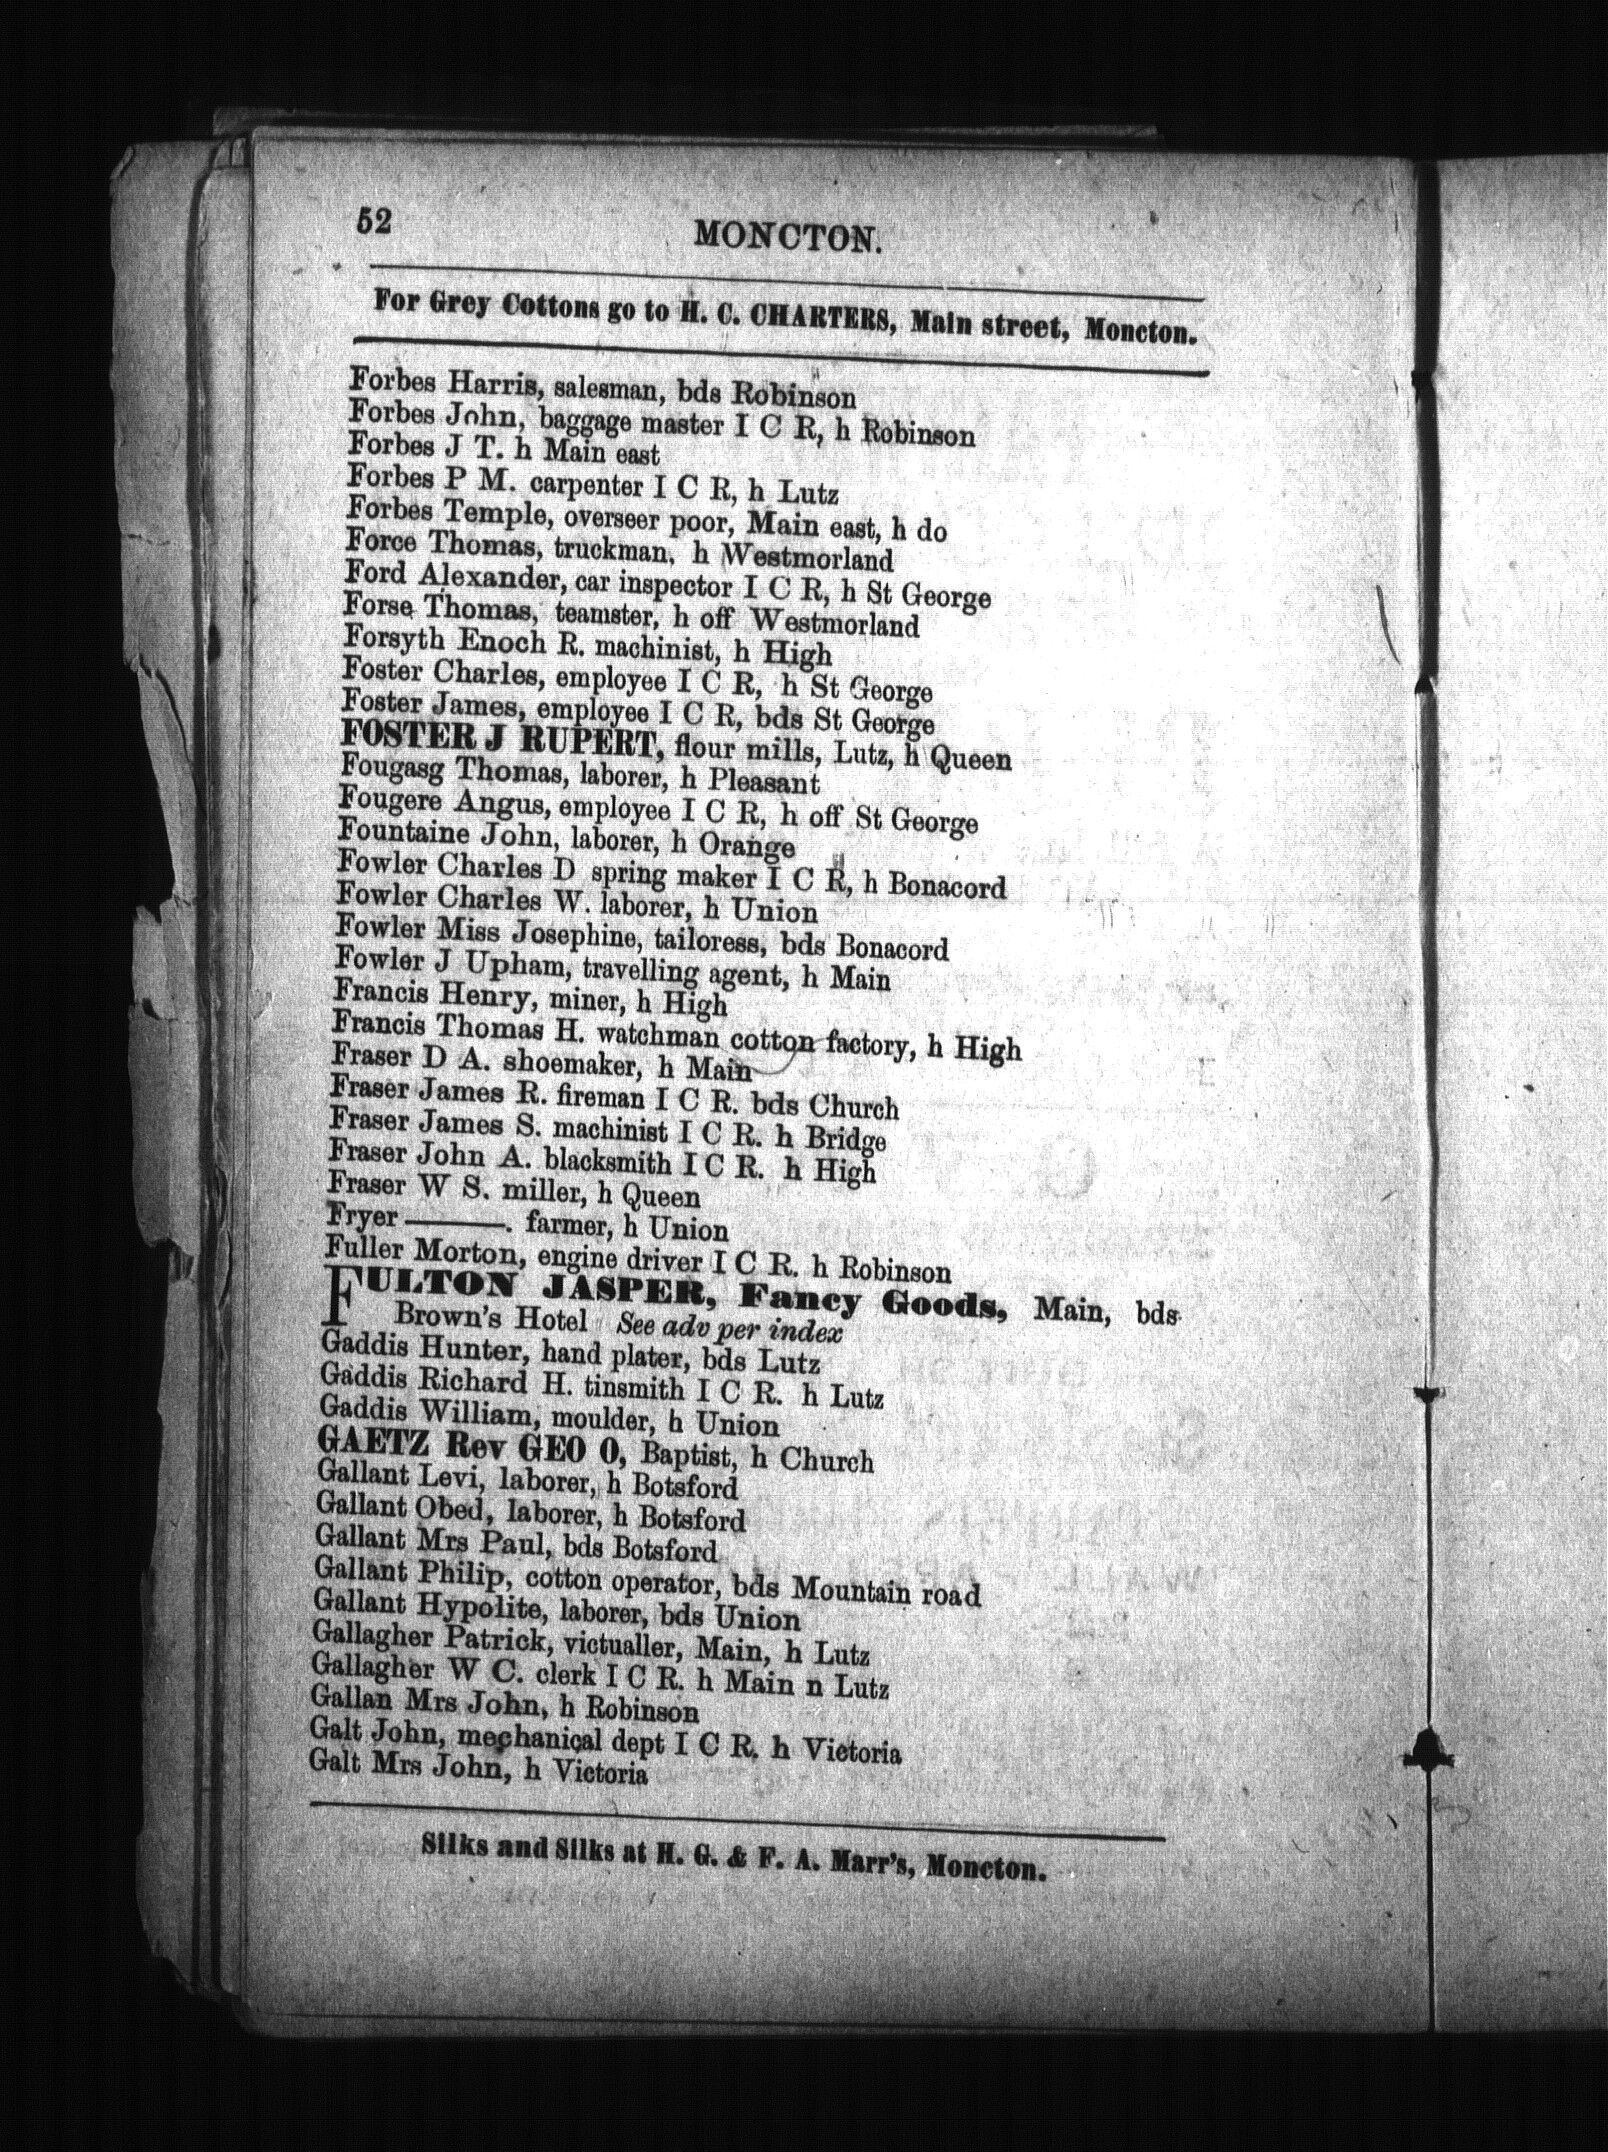 52
MONCTON.
For Grey Cottons go to H. C. CHARTERS, Main street, Moncton.
Forbes Harris, salesman, bds Robinson
Forbes John, baggage master I C R, h Robinson
Forbes J T. h Main east
Forbes P M. carpenter I C R, h Lutz
Forbes Temple, overseer poor, Main east, h do
Force Thomas, truckman, h Westmorland
Ford Alexander, car inspector I C R, h St George
Forse Thomas, teamster, h off Westmorland
Forsyth Enoch R. machinist, h High
Foster Charles, employee I C R, h St George
Foster James, employee I C R, bds St George
FOSTER J RUPERT, flour mills, Lutz, h Queen
Fougasg Thomas, laborer, h Pleasant
Fougere Angus, employee I C R, h off St George
Fountaine John, laborer, h Orange
Fowler Charles D spring maker I C R, h Bonacord
Fowler Charles W. laborer, h Union
Fowler Miss Josephine, tailoress, bds Bonacord
Fowler J Upham, travelling agent, h Main
Francis Henry, miner, h High
Francis Thomas H. watchman cotton factory, h High
Fraser D A. shoemaker, h Main
Fraser James R. fireman I C R. bds Church
Fraser James S. machinist I C R. h Bridge
Fraser John A. blacksmith I C R. h High
Fraser W S. miller, h Queen
Fryer ———. farmer, h Union
Fuller Morton, engine driver I C R. h Robinson
FULTON JASPER, Fancy Goods, Main, bds
Brown's Hotel See adv per index
Gaddis Hunter, hand plater, bds Lutz
Gaddis Richard H. tinsmith I C R. h Lutz
Gaddis William, moulder, h Union
GAETZ Rev GEO O, Baptist, h Church
Gallant Levi, laborer, h Botsford
Gallant Obed, laborer, h Botsford
Gallant Mrs Paul, bds Botsford
Gallant Philip, cotton operator, bds Mountain road
Gallant Hypolite, laborer, bds Union
Gallagher Patrick, victualler, Main, h Lutz
Gallagher W C. clerk I C R. h Main n Lutz
Gallan Mrs John, h Robinson
Galt John, mechanical dept I C R. h Victoria
Galt Mrs John, h Victoria
Silks and Silks at H. G. & F. A. Marr's, Moncton.